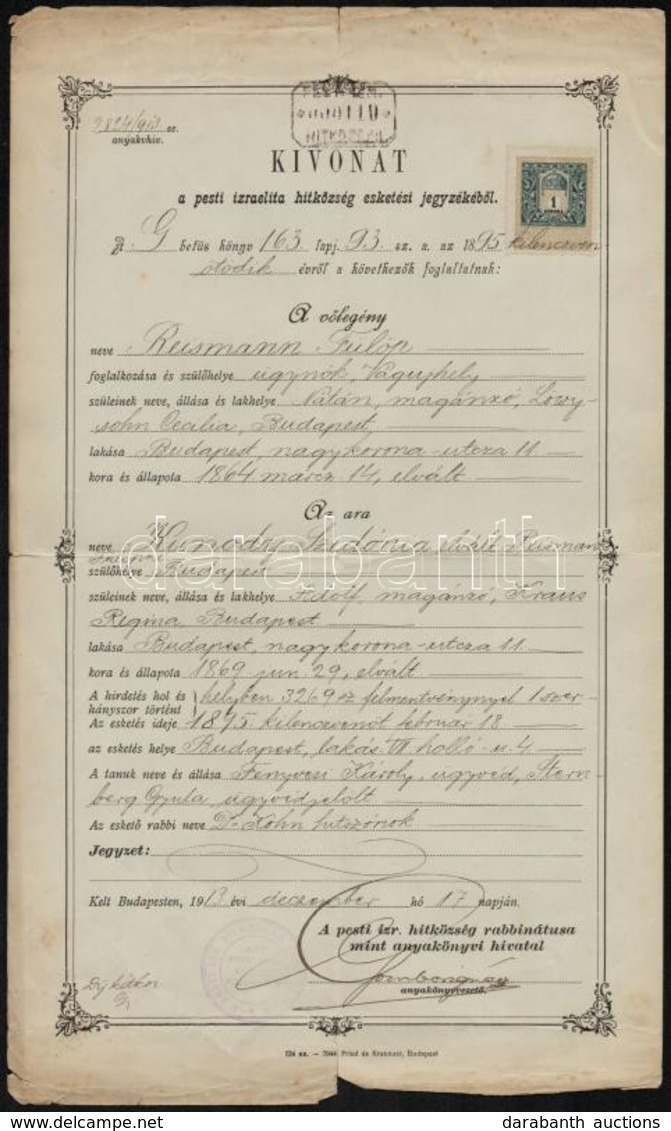 2824/913 sz.
anyakvkiv.
PESTI IZR.
HITKÖZSÉG
KIVONAT
a pesti izraelita hitközség esketési jegyzékéből.
1
KORONA
A G betüs könyv 163 lapj. 93. sz. a. az 1895 kilenczven
ötödik évről a következők foglaltatnak:
A vőlegény
neve Reismann Fülöp
foglalkozása és szülőhelye ügynök, Vágujhely
szüleinek neve, állása és lakhelye Nátán, magánzó, Löwy-
sohn Cecilia, Budapest,
lakása Budapest, nagykorona-utcza 11
kora és állapota 1864 márcz. 14, elvált
Az ara
neve Kunody Szidónia elvált Reisman
szülőhelye Budapest
szüleinek neve, állása és lakhelye Adolf, magánzó, Kraus
Regina, Budapest
lakása Budapest, nagykorona-utcza 11.
kora és állapota 1869 jun. 29, elvált
A hirdetés hol és hányszor történt helyben 3269 sz felmentvénynyel 1 szer
Az esketés ideje 1895. kilenczvenöt február 18
az esketés helye Budapest, lakás: VII. holló-u. 4.
A tanuk neve és állása Fenyvesi Károly, ügyvéd, Stern-
berg Gyula, ügyvédjelölt
Az eskető rabbi neve Dr Kohn
Jegyzet:
Kelt Budapesten, 1913 évi deczember hó 17 napján.
A pesti izr. hitközség rabbinátusa
mint anyakönyvi hivatal
anyakönyvvezető.
124 sz. — 7044 Budapest
darabanth
www.darabanth.com
darabanth auctions